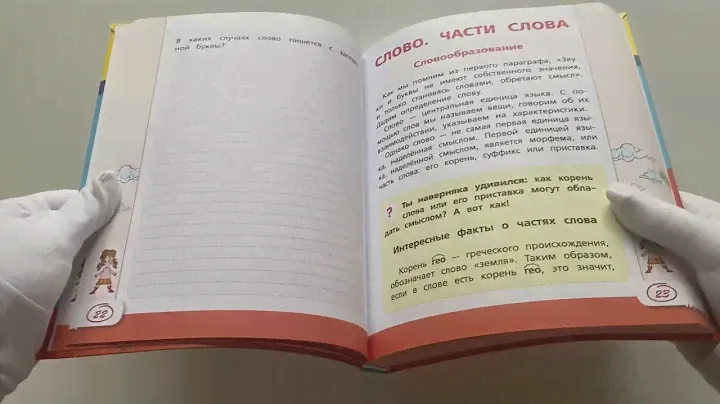 В каких случаях слово пишется с заглав-
ной буквы?
22
СЛОВО. ЧАСТИ СЛОВА
Словообразование
Как мы помним из первого параграфа, «Зву-
ки и буквы не имеют собственного значения,
и только становясь словами, обретают смысл».
Дадим определение слову.
Слово — центральная единица языка. С по-
мощью слов мы называем вещи, говорим об их
взаимодействии, указываем на характеристики.
Однако слово — не самая первая единица язы-
ка, наделённая смыслом. Первой единицей язы-
ка, наделённой смыслом, является морфема, или
часть слова: его корень, суффикс или приставка.
? Ты наверняка удивился: как корень
слова или его приставка могут обла-
дать смыслом? А вот как!
Интересные факты о частях слова
Корень гео — греческого происхождения,
обозначает слово «земля». Таким образом,
если в слове есть корень гео, это значит,
23